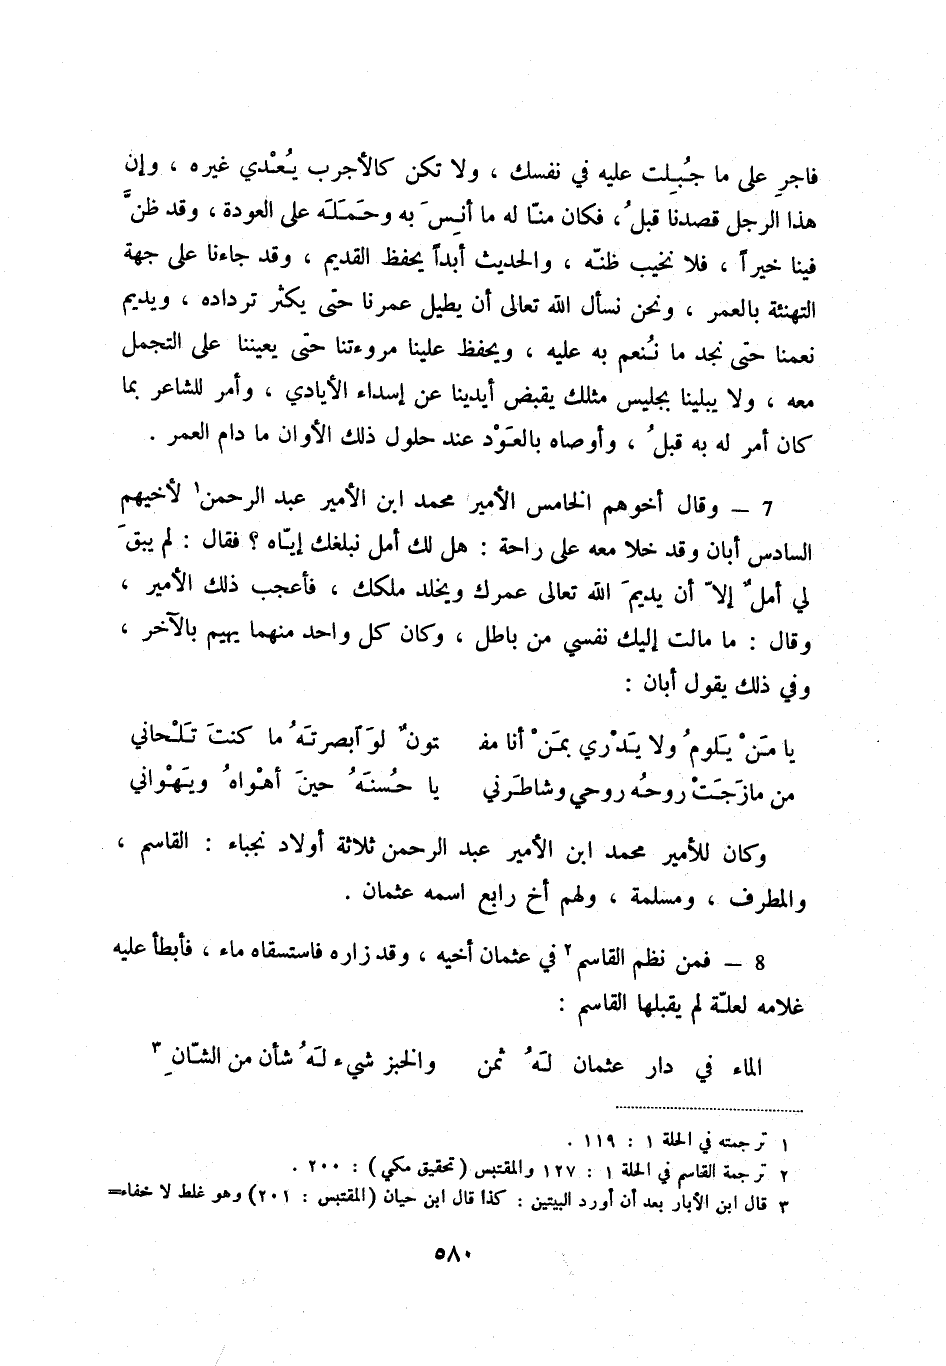 فاجرِ على ما جُبِلت عليه في نفسك ، ولا تكن كالأجرب يُعْدي غيره ، وإن
هذا الرجل قصدنا قبلُ ، فكان منّا له ما أنِسَ به وحَمَلَه على العودة ، وقد ظنَّ
فينا خيراً ، فلا نخيب ظنّه ، والحديث أبداً يحفظ القديم ، وقد جاءنا على جهة
التهنئة بالعمر ، ونحن نسأل الله تعالى أن يطيل عمرنا حتّى يكثر ترداده ، ويديم
نعمنا حتّى نجد ما نُنعم به عليه ، ويحفظ علينا مروءتنا حتّى يعيننا على التجمل
معه ، ولا يبلينا بجليس مثلك يقبض أيدينا عن إسداء الأيادي ، وأمر للشاعر بما
كان أمر له به قبلُ ، وأوصاه بالعَوْد عند حلول ذلك الأوان ما دام العمر .
7 – وقال أخوهم الخامس الأمير محمد ابن الأمير عبد الرحمن١ لأخيهم
السادس أبان وقد خلا معه على راحة : هل لك أمل نبلغك إيّاه ؟ فقال : لم يبقَ
لي أملٌ إلاّ أن يديمَ الله تعالى عمرك ويخلد ملكك ، فأعجب ذلك الأمير ،
وقال : ما مالت إليك نفسي من باطل ، وكان كل واحد منهما يهيم بالآخر ،
وفي ذلك يقول أبان :
يا مَنْ يَلومُ ولا يَدْري بمَنْ أنا مفـ تونٌ لوَ ابصرتَهُ ما كنتَ تَلْحاني
من مازَجَتْ روحُه روحي وشاطَرني يا حُسنَهُ حينَ أهْواهُ ويَهْواني
وكان للأمير محمد ابن الأمير عبد الرحمن ثلاثة أولاد نجباء : القاسم ،
والمطرف ، ومسلمة ، ولهم أخ رابع اسمه عثمان .
8 – فمن نظم القاسم٢ في عثمان أخيه ، وقد زاره فاستسقاه ماء ، فأبطأ عليه
غلامه لعلّة لم يقبلها القاسم :
الماء في دار عثمان لَهُ ثمن والخبز شيء لَهُ شأن من الشّانِ٣
١ ترجمته في الحلة ١ : ١١٩ .
٢ ترجمة القاسم في الحلة ١ : ١٢٧ والمقتبس (تحقيق مكي) : ٢٠٠ .
٣ قال ابن الأبار بعد أن أورد البيتين : كذا قال ابن حيان (المقتبس : ٢٠١) وهو غلط لا خفاء=
٥٨٠